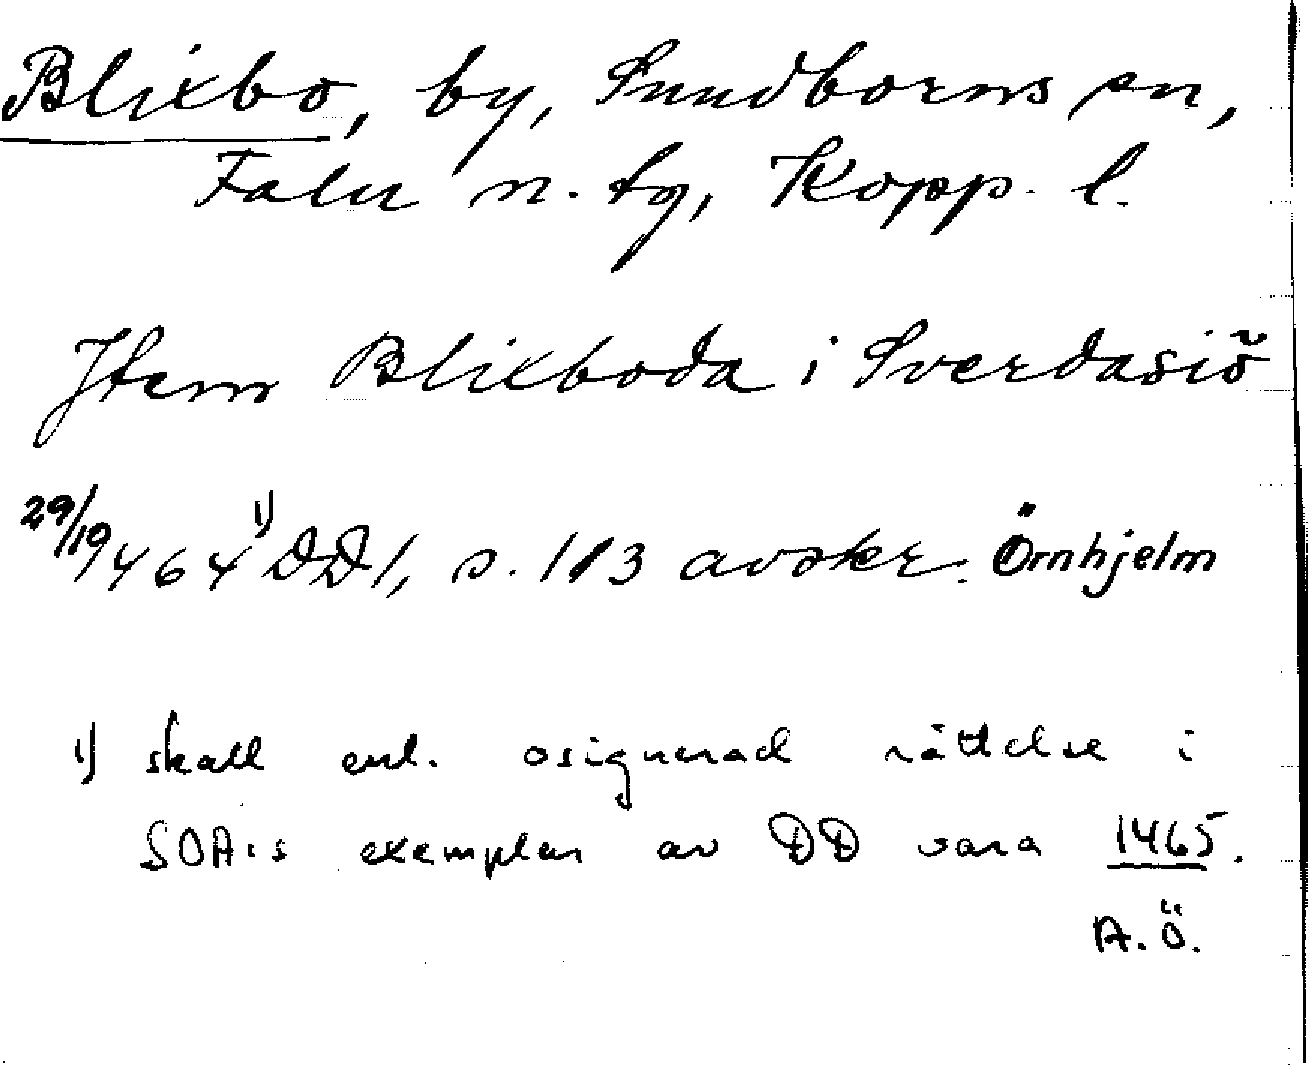 Blixbo, by, Sundborns sn,
Falu n. tg, Kopp. l.
Jtem Blixboda i Sverdasiö
29/10 1464 1) DD1, s. 113 avskr. Örnhjelm
1) skall enl. osignerad rättelse i
SOA:s exemplar av DD vara 1465.
A.Ö.